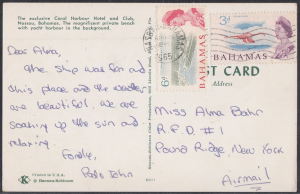 The exclusive Coral Harbour Hotel and Club,
Nassau, Bahamas. The magnificent private beach
with yacht harbour in the background.
Dear Alma,
The ship was fun and
this place and the weather
are beautiful. We are
soaking up the sun and
relaxing.
Fondly,
BAHAMAS
6d
1965
3d
BAHAMAS
T CARD
Address
Miss Alma Bahr
R.F.D. #1
Pound Ridge, New York
Airmail
Printed in U.S.A.
K